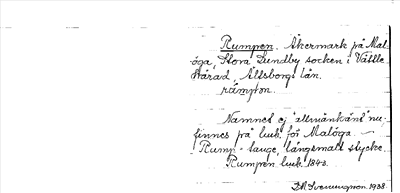 Rumpen. Åkermark på Mal-
öga, Stora Lundby socken i Vättle
härad, Älvsborgs län.
råmpon.
Namnet ej "allmänkänt" nu,
finnes på luck. för Malöga. -
Rump - tange, långsmalt stycke.
Rumpen luck. 1843.
1938.